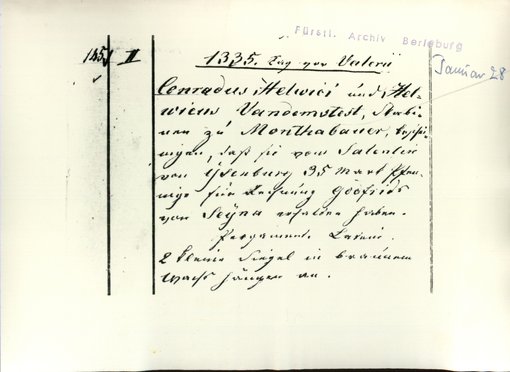 Fürstl. Archiv Berleburg
Januar 28
II
1335. Tag vor Valerii
Conradus Helwici und Hel-
wicus Vandemstest, Scabi-
nen zu Monthabauer, beschei-
nigen, daß sie vom Salentin
von Isenburg 35 Mark Pfen-
nige für Rechnung Godfrids
von Seyna erhalten haben.
Pergament. Latein.
2 kleine Siegel in braunem
Wachs hängen an.